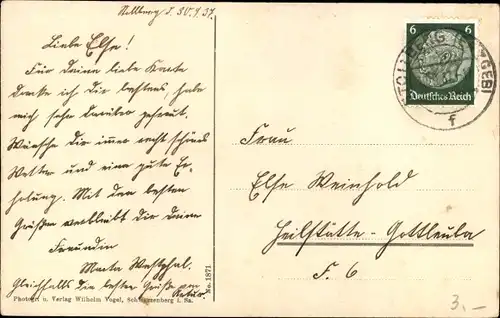 Stollberg, d. 30.9.37.
Liebe Else!
Für Deine liebe Karte
danke ich Dir bestens, habe
mich sehr darüber gefreut.
Wünsche Dir immer recht schönes
Wetter und eine gute Er-
holung. Mit den besten
Grüßen verbleibt Dir Deine
Freundin
Marta Westphal.
Gleichfalls die besten Grüße von
Photogr. u. Verlag Wilhelm Vogel, Schwarzenberg i. Sa.
No. 1871
6 6
Deutsches Reich
STOLLBERG (ERZGEB)
f
Frau
Else Weinhold
Heilstätte-Gottleuba
F. 6
3,-